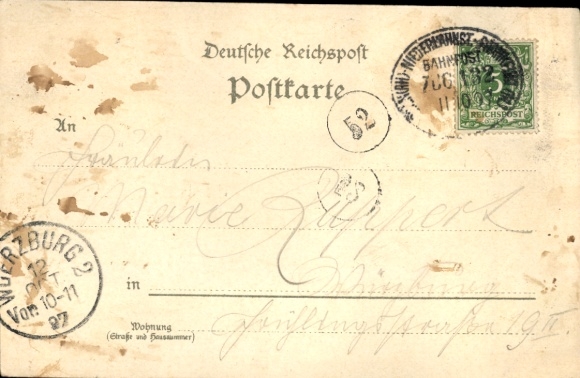 Deutsche Reichspost
Postkarte
BAHNPOST
5
REICHSPOST
52
An
Fräulein
Marie Ruppert
WUERZBURG 2
12
OKT
Vor. 10-11
97
in Würzburg
Wohnung
(Straße und Hausnummer)
Frühlingsstraße 19 II